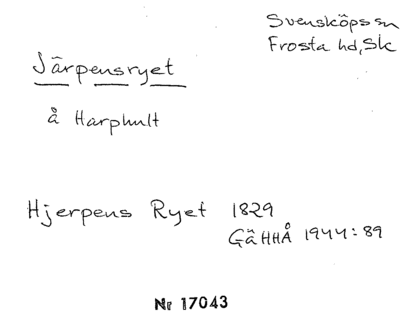 Svensköps sn
Frosta hd, Sk
Järpensryet
å Harphult
Hjerpens Ryet 1829
GäHHÅ 1944:89
Nr 17043